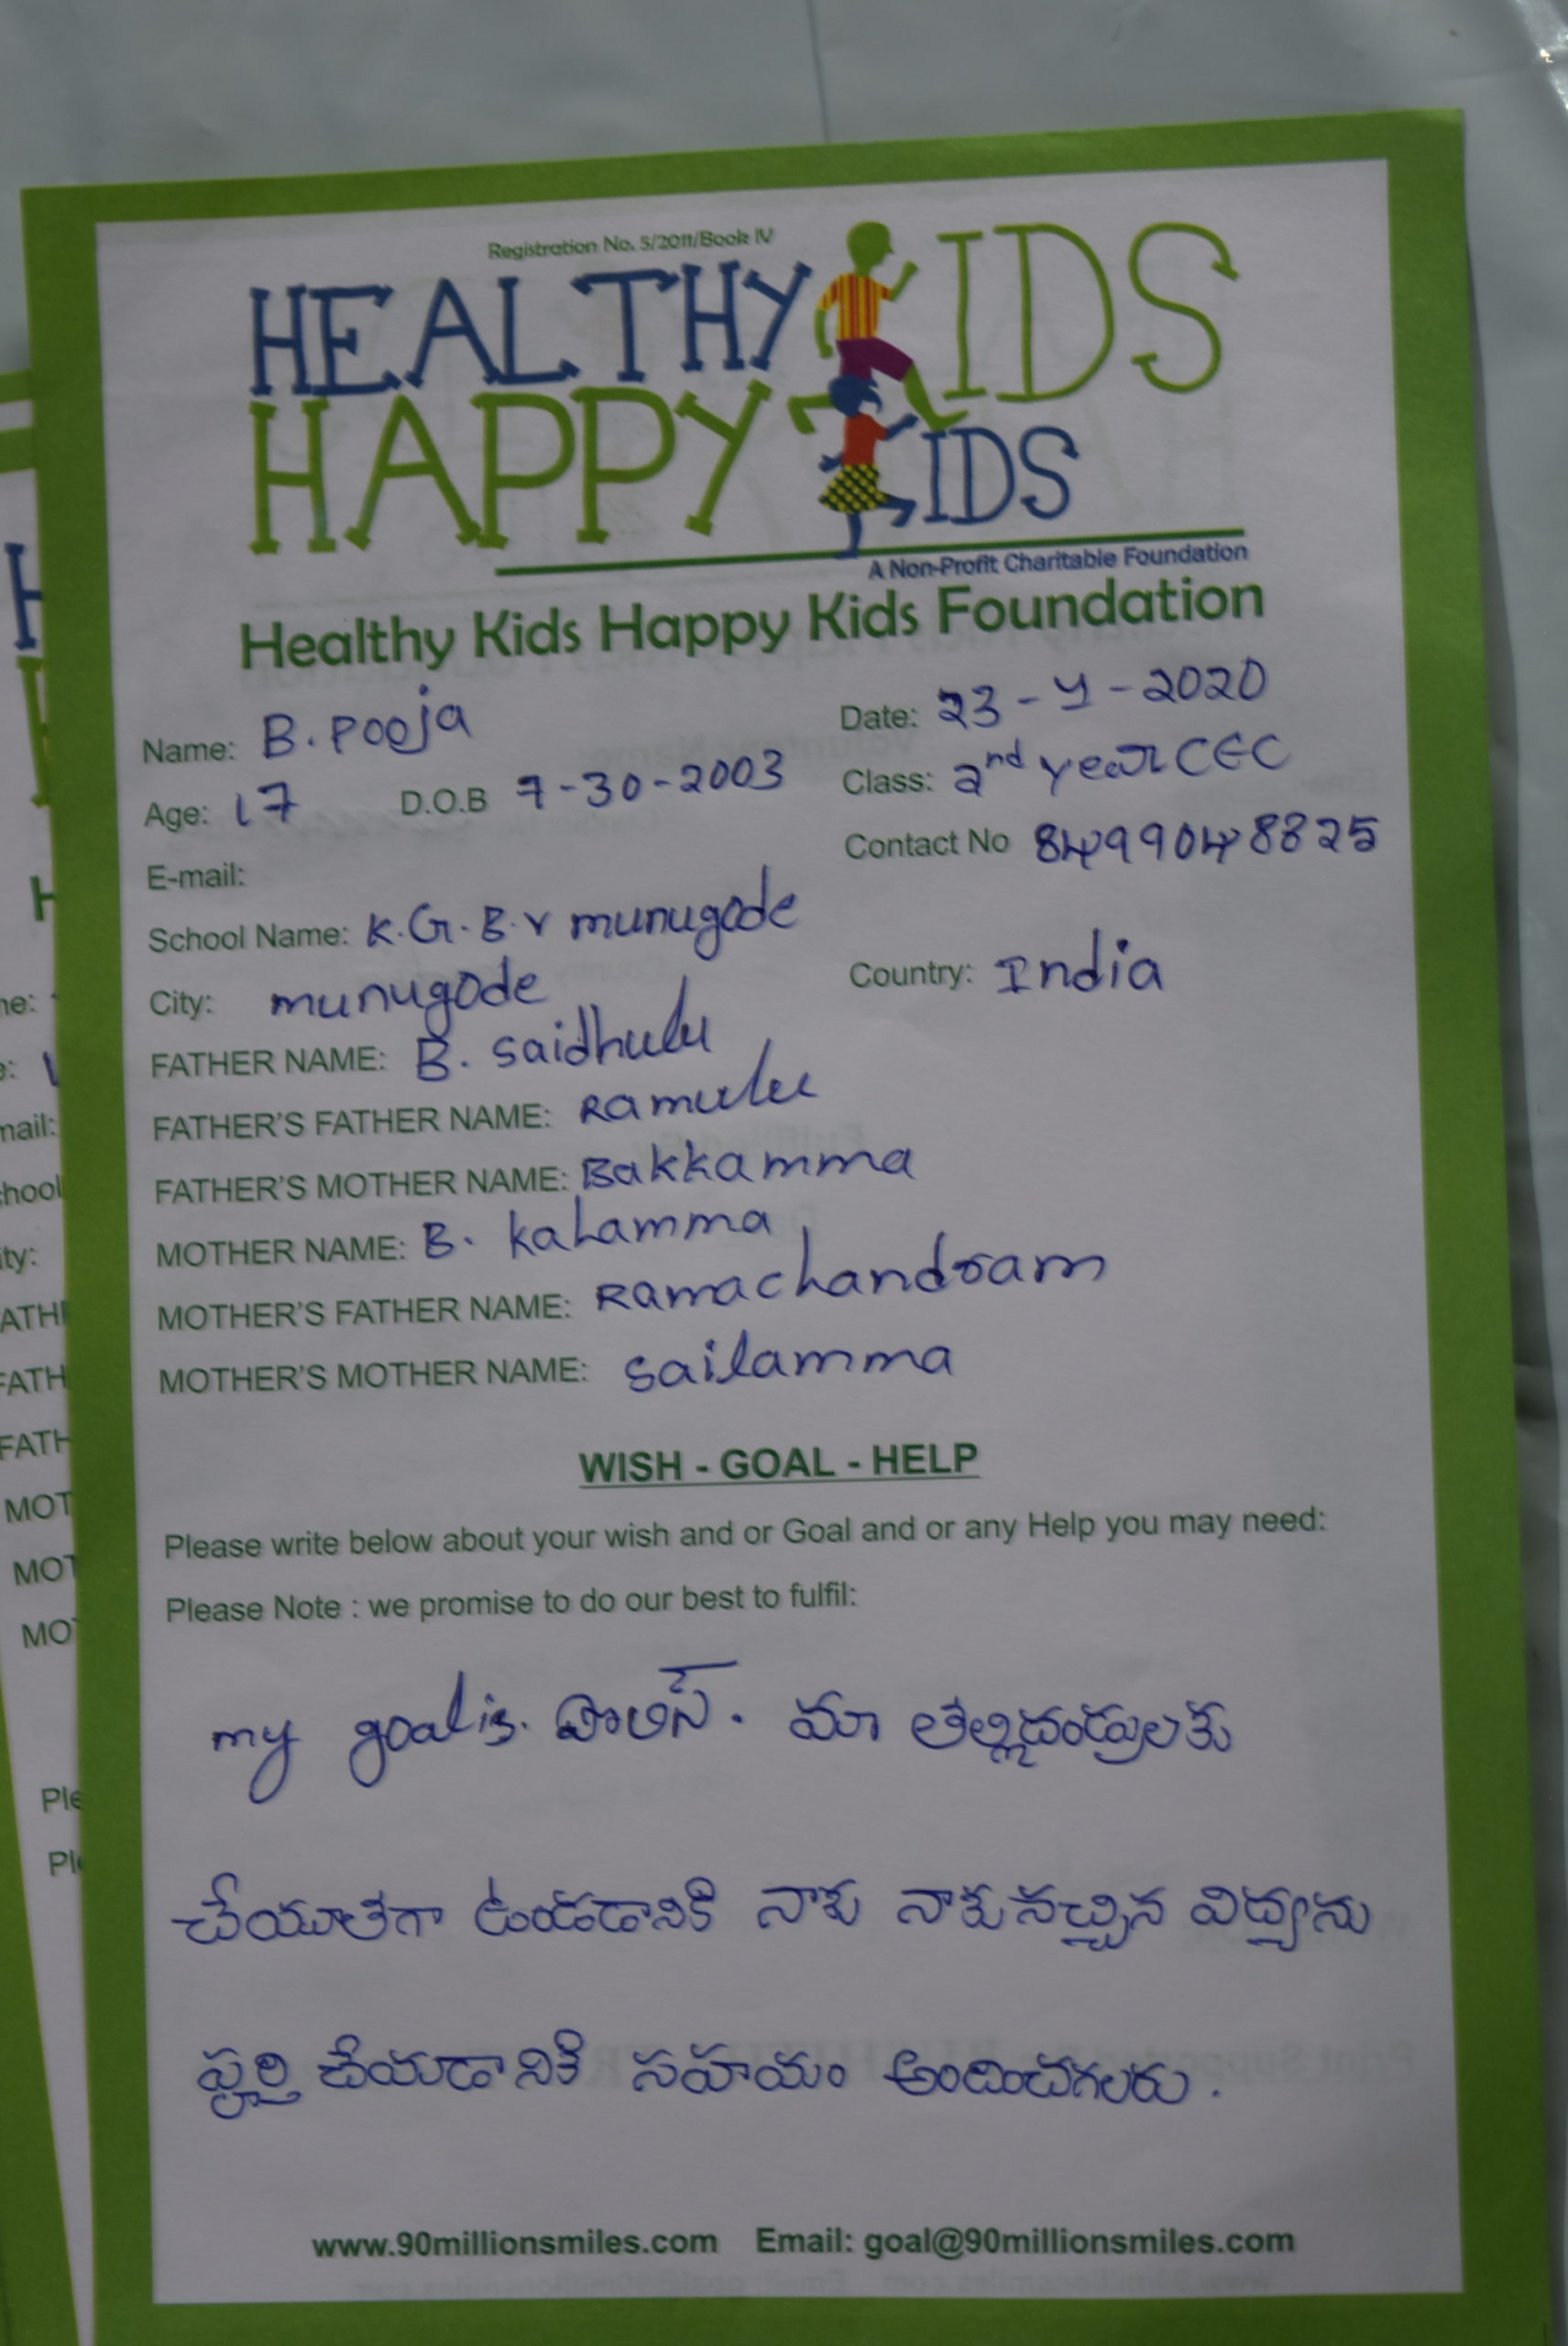 Registration No. 5/2011/Book IV
HEALTHY KIDS
HAPPY KIDS
A Non-Profit Charitable Foundation
Healthy Kids Happy Kids Foundation
Name: B. Pooja Date: 23 - 4 - 2020
Age: 17 D.O.B 7-30-2003 Class: 2nd year CEC
E-mail: Contact No 8499048825
School Name: K.G.B.V munugode
City: munugode Country: India
FATHER NAME: B. saidhulu
FATHER'S FATHER NAME: Ramulu
FATHER'S MOTHER NAME: Bakkamma
MOTHER NAME: B. kalamma
MOTHER'S FATHER NAME: Ramachandram
MOTHER'S MOTHER NAME: sailamma
WISH - GOAL - HELP
Please write below about your wish and or Goal and or any Help you may need:
Please Note : we promise to do our best to fulfil:
my goal is. పొలిస్. మా తల్లిదండ్రులకు
చేయూతగా ఉండడానికి నాకు నాకు నచ్చిన విద్యను
పూర్తి చేయడానికి సహయం అందించగలరు.
www.90millionsmiles.com Email: goal@90millionsmiles.com